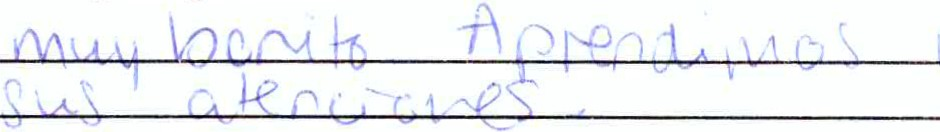 muy bonito Aprendimos
sus atenciones.